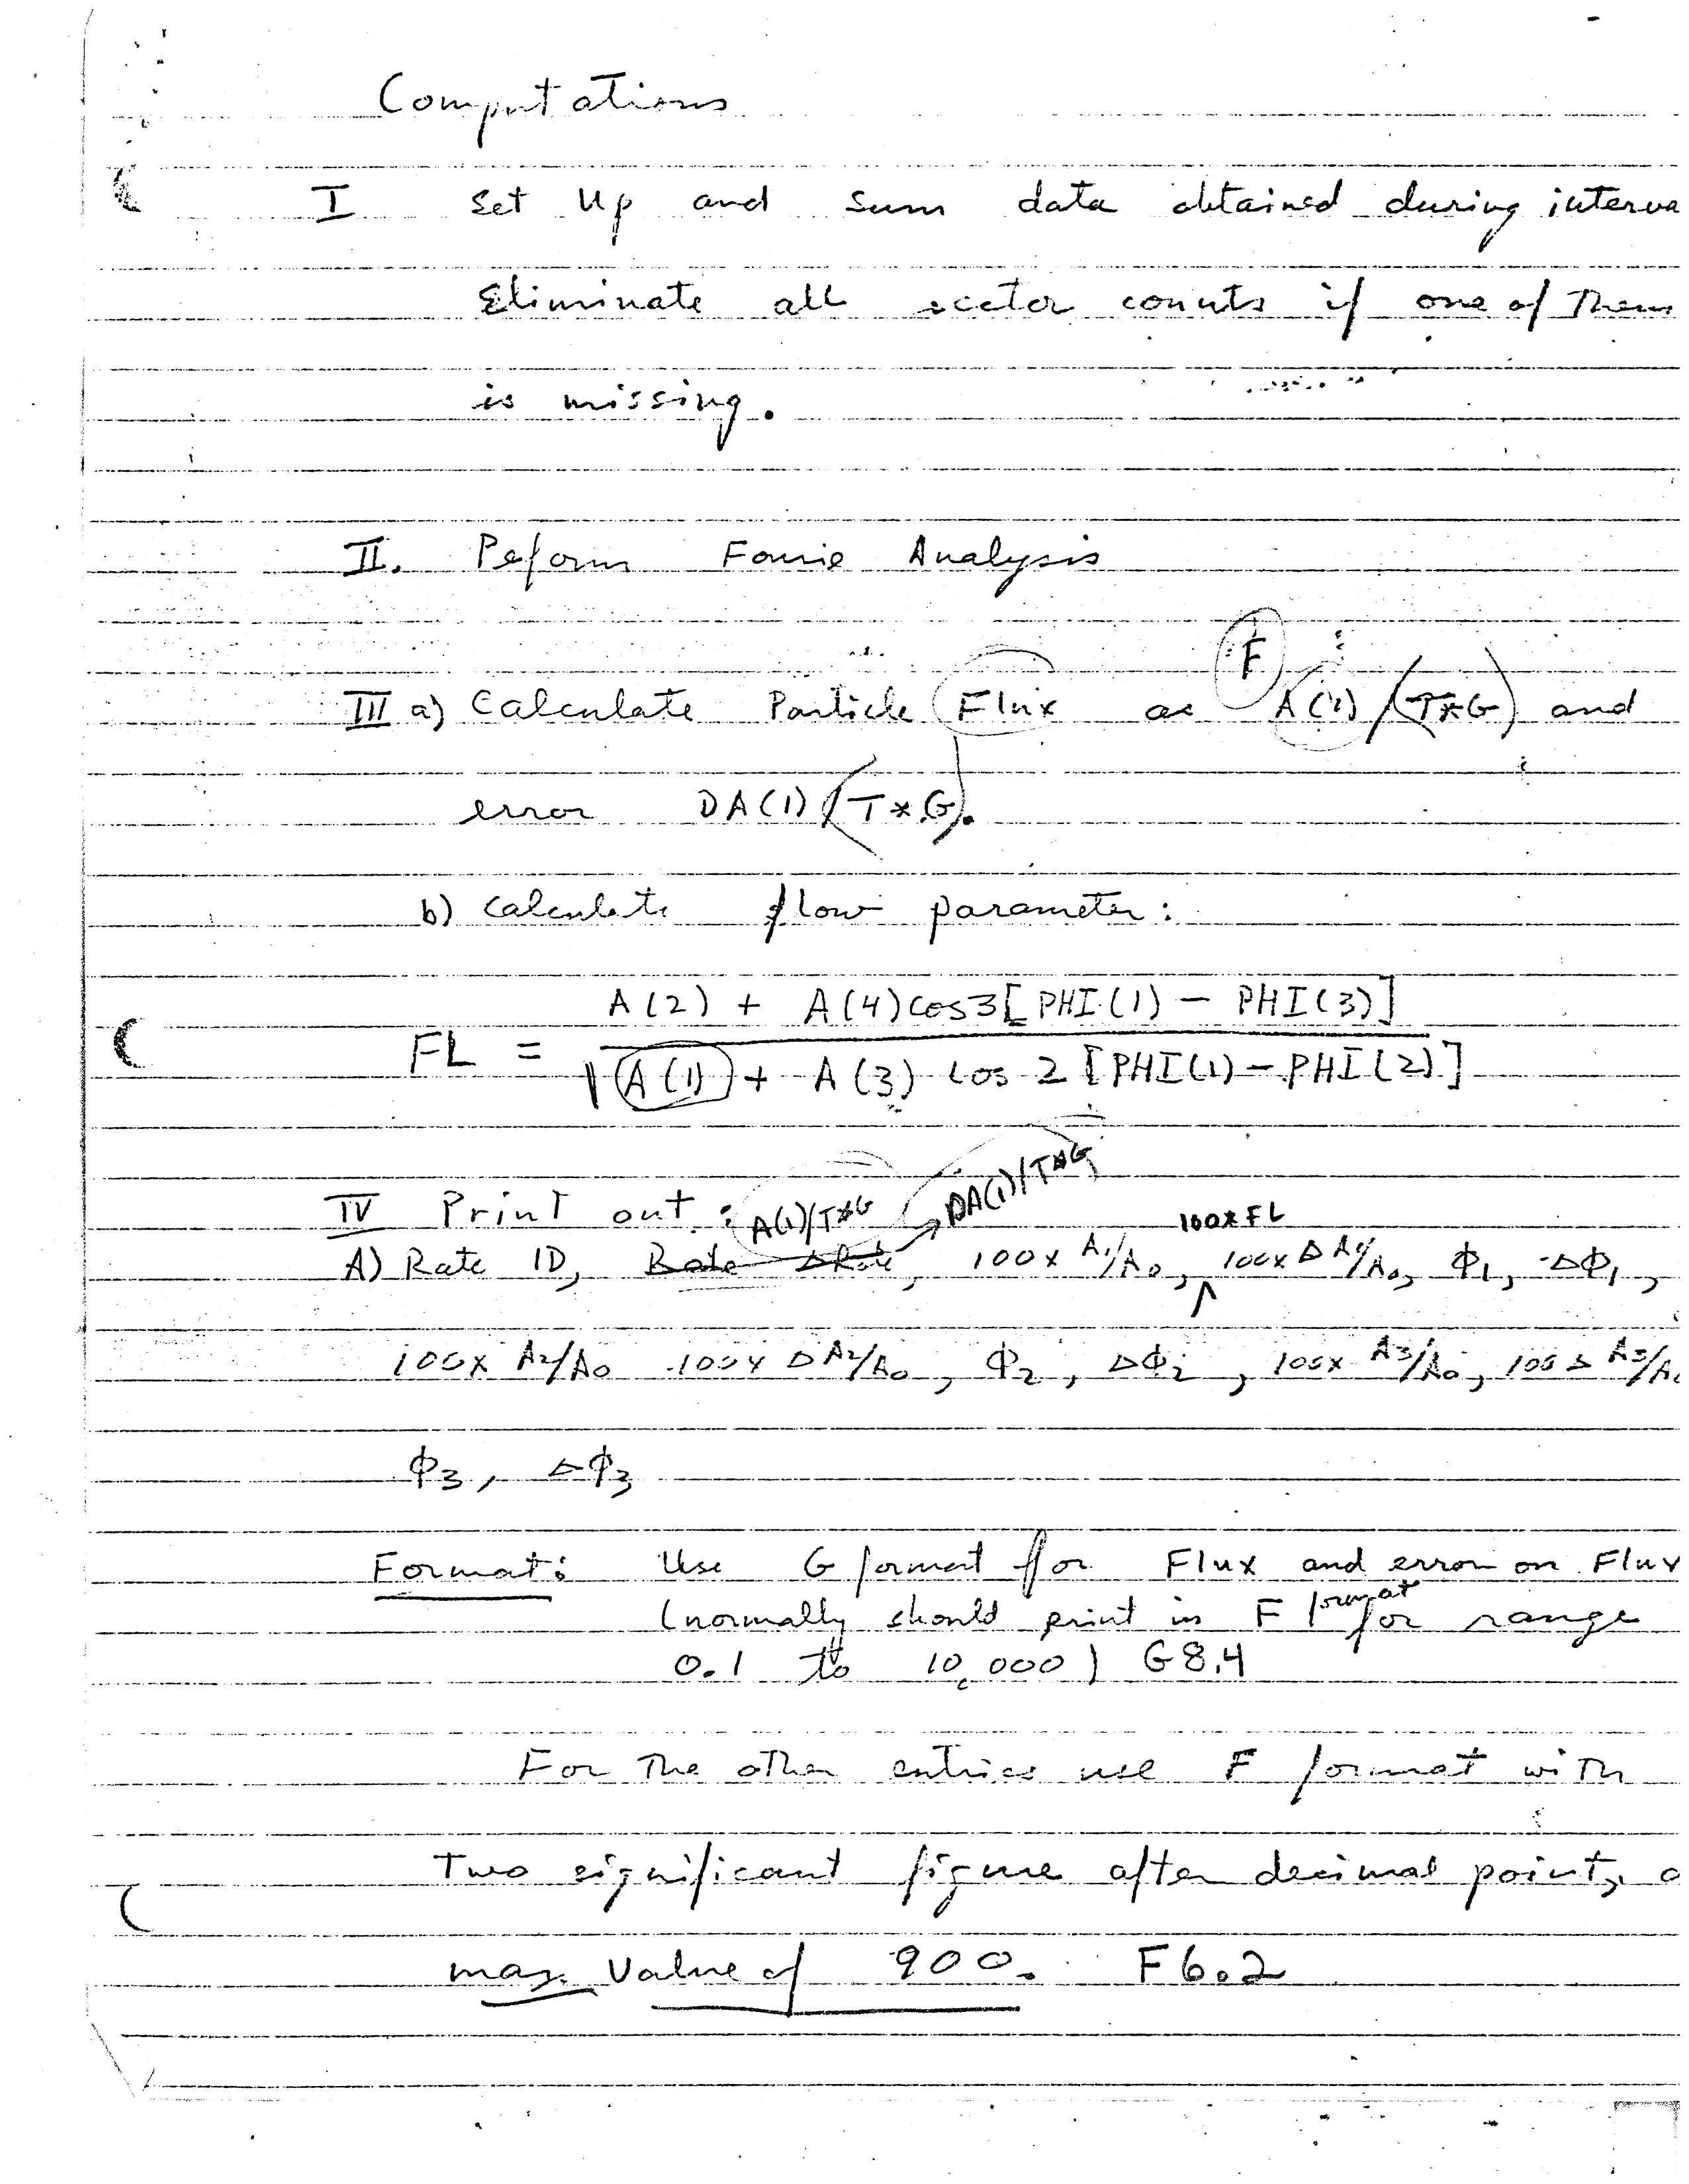 Computations
I Set Up and sum data obtained during interva
Eliminate all sector counts if one of Them
is missing.
II. Peform Fourie Analysis
F
III a) Calculate Particle Flux as A(1)/(T*G) and
error DA(1)/(T*G).
b) Calculate flow parameter:
A(2) + A(4)cos3[PHI(1) - PHI(3)]
FL =
A(1) + A(3) cos 2 [PHI(1) - PHI(2)]
IV Print out: A(1)/T*G DA(1)/T*G
100x FL
A) Rate ID, Rate ΔRate, 100x A1/A0, 100x ΔA1/A0, Φ1, ΔΦ1,
100x A2/A0 100x ΔA2/A0, Φ2, ΔΦ2, 100x A3/A0, 100 Δ A3/A
Φ3, ΔΦ3
Format: Use G format for Flux and error on Flux
(normally should print in F format for range
0.1 to 10,000) G8.4
For The other entries use F format with
Two significant figure after decimal point,
max. Value of 900. F6.2